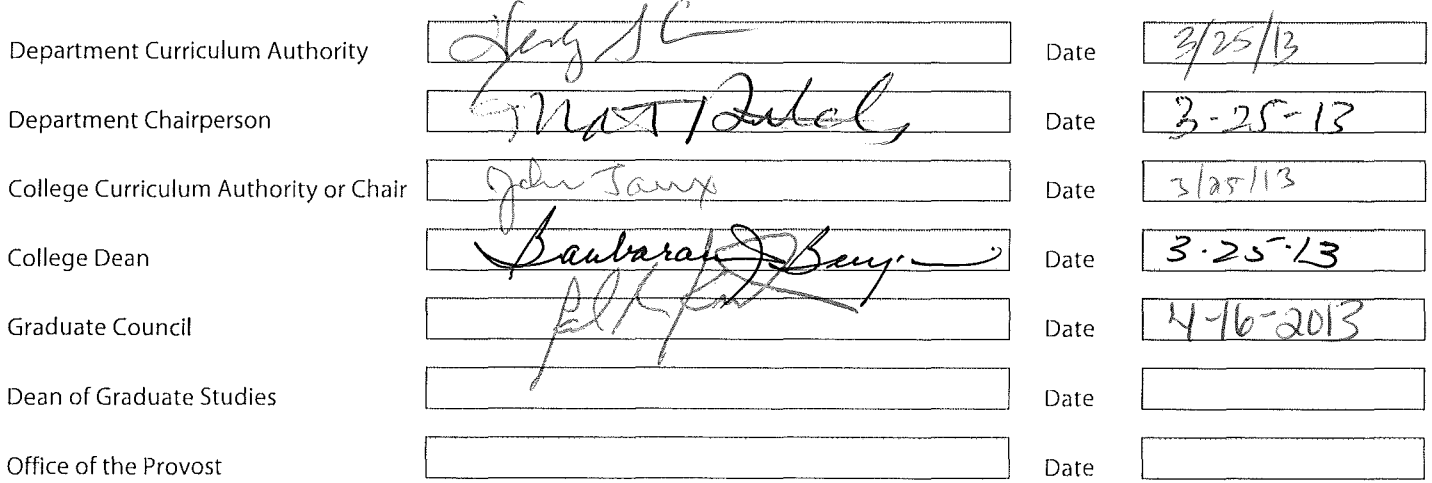 Department Curriculum Authority Date 3/25/13
Department Chairperson Date 3-25-13
College Curriculum Authority or Chair John Date 3/25/13
College Dean Date 3·25·13
Graduate Council Date 4-16-2013
Dean of Graduate Studies Date
Office of the Provost Date